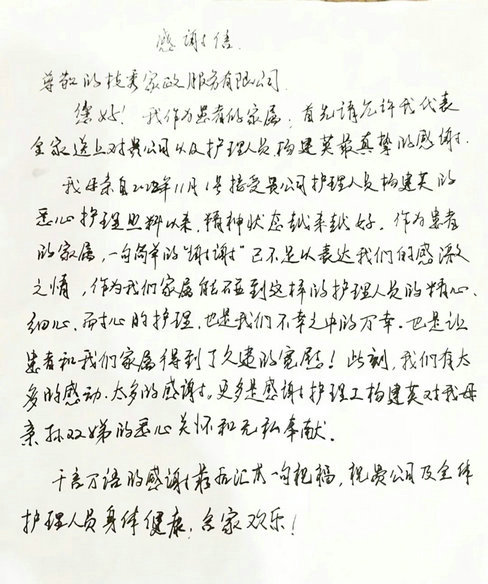 感谢信
尊敬的技秀家政服务有限公司
您好！我作为患者的家属，首先请允许我代表
全家送上对贵公司以及护理人员杨建英最真挚的感谢。
我母亲自2023年11月1号接受贵公司护理人员杨建英的
悉心护理照料以来，精神状态越来越好。作为患者
的家属，一句简单的“谢谢”已不足以表达我们的感激
之情，作为我们家属能不遇到这样的护理人员的精心、
细心、耐心的护理，也是我们不幸之中的万幸。也是让
患者和我们家属得到了久违的宽慰！此刻，我们有太
多的感动、太多的感谢，更多是感谢护理工杨建英对我母
亲孙双娣的悉心关怀和无私奉献。
千言万语的感谢最后汇成一句祝福，祝贵公司及全体
护理人员身体健康，合家欢乐！